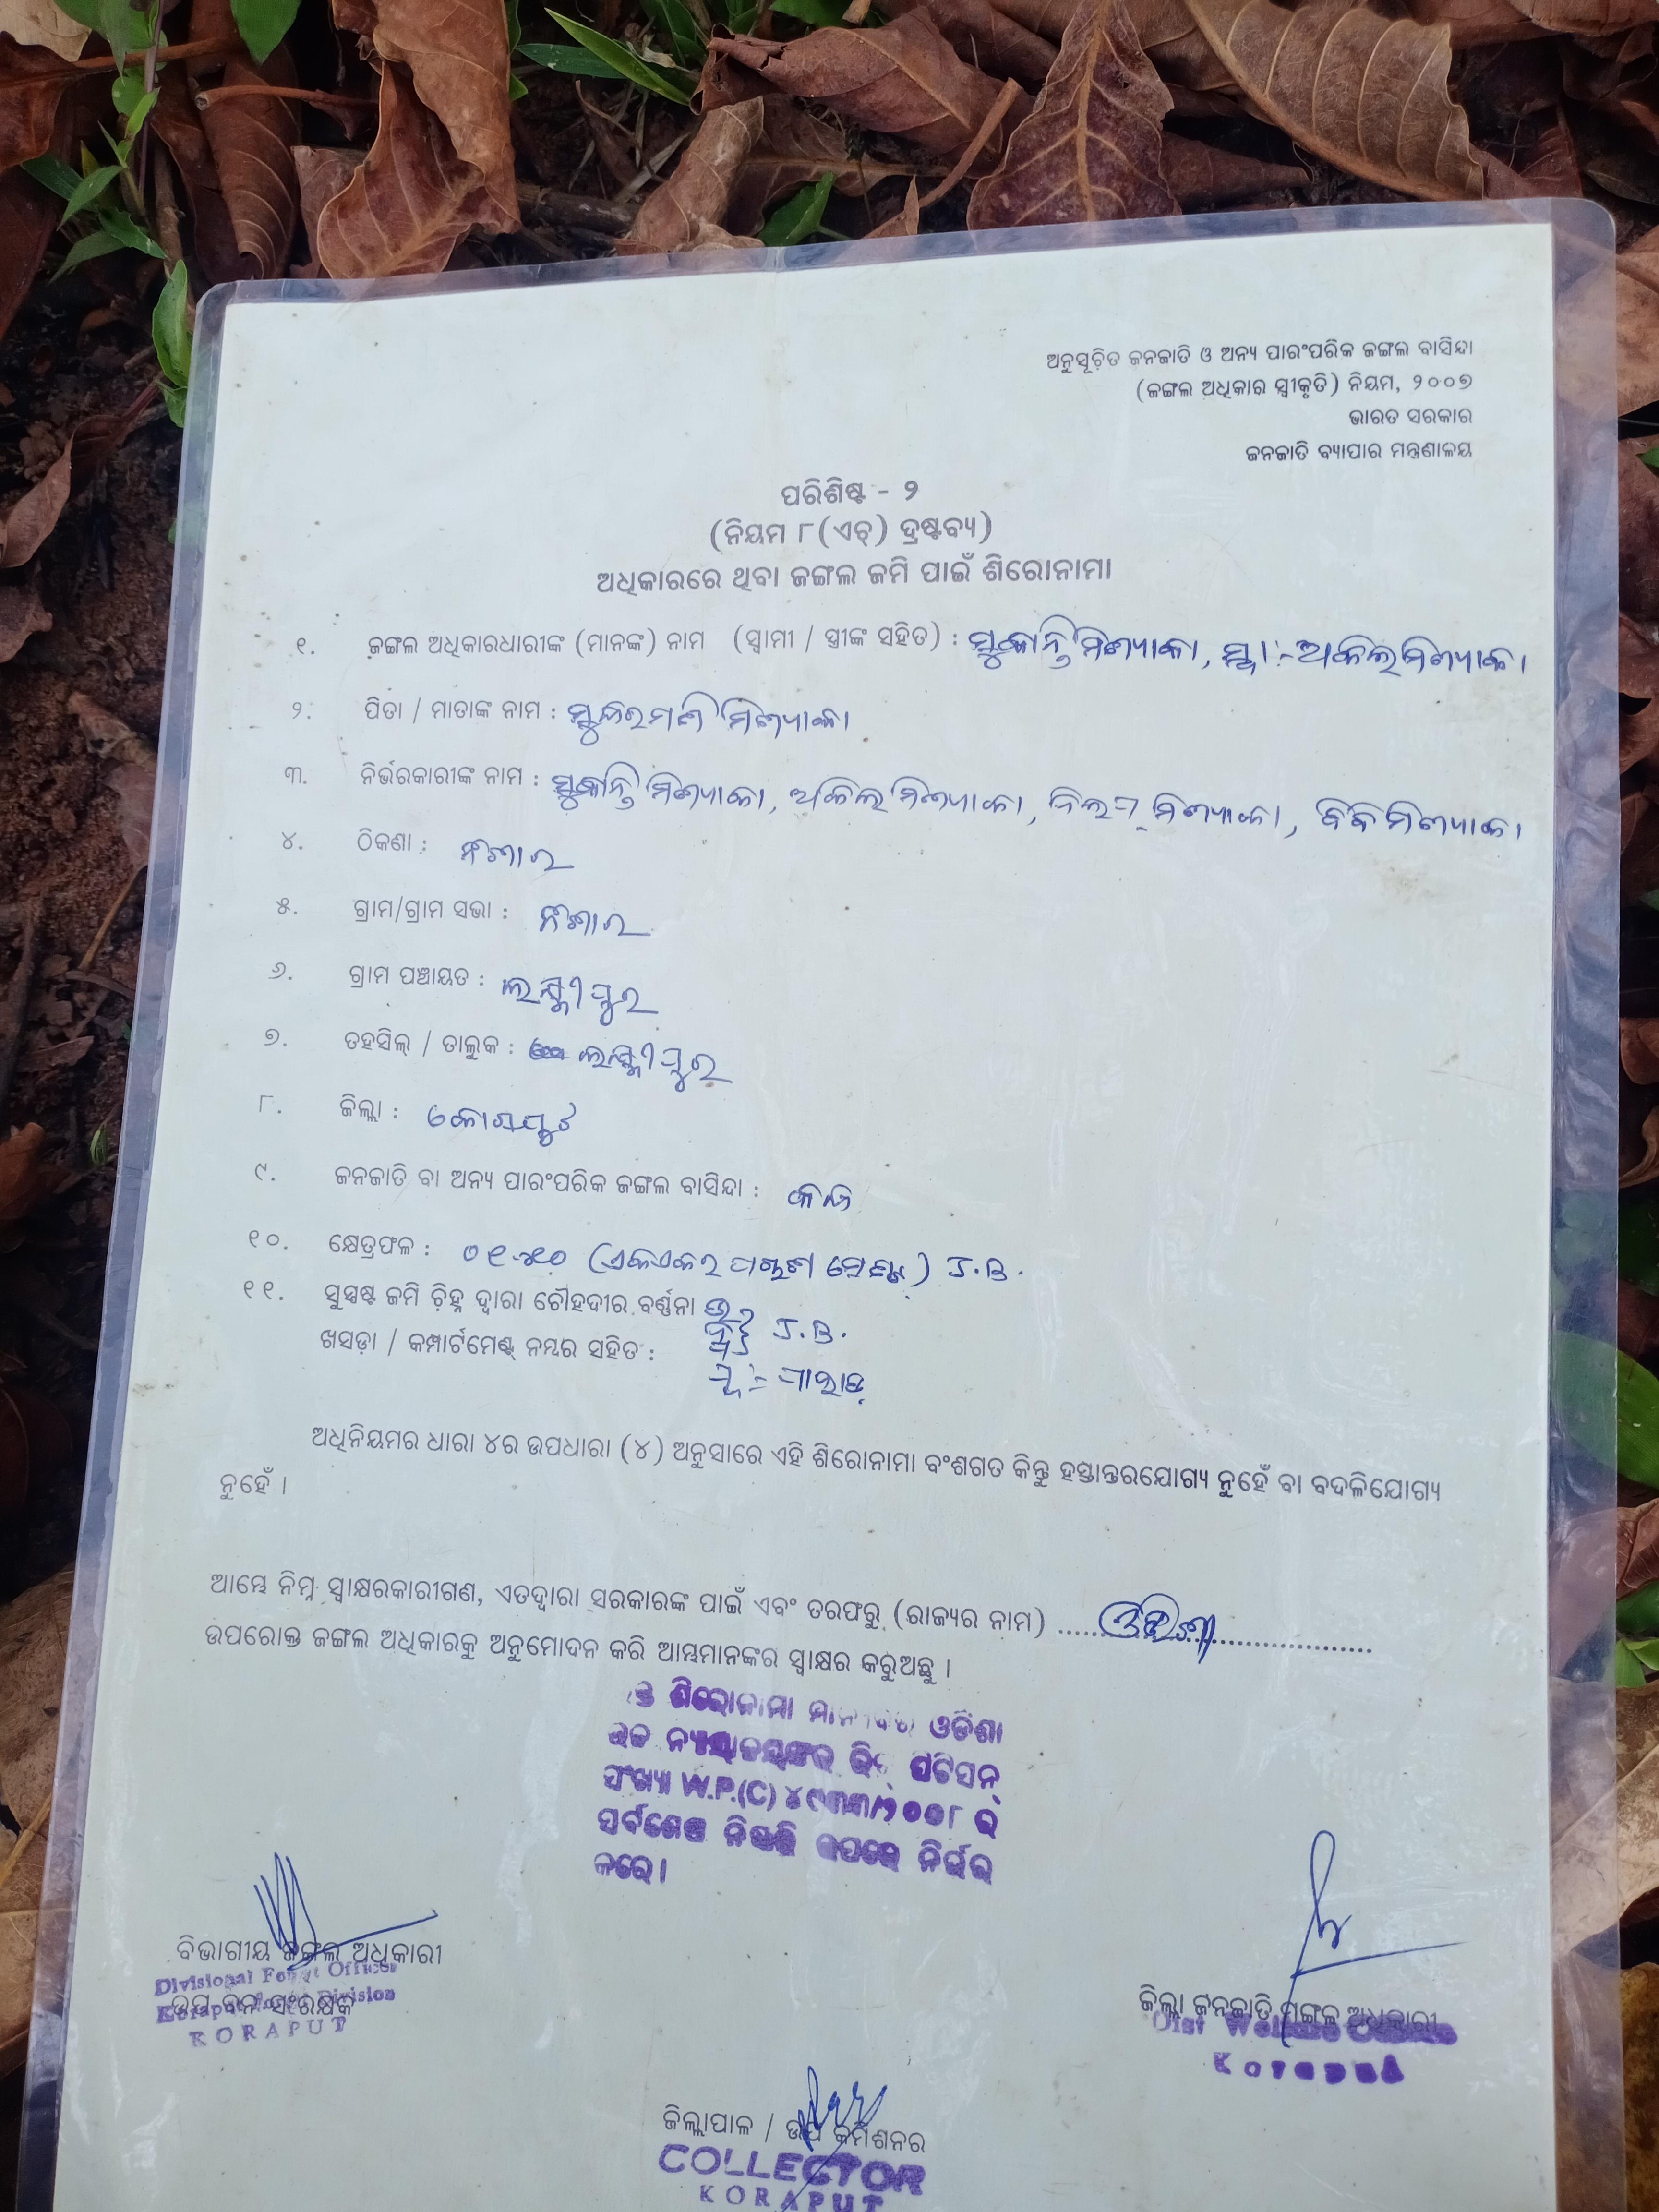 ଅନୁସୂଚିତ ଜନଜାତି ଓ ଅନ୍ୟ ପାରଂପରିକ ଜଙ୍ଗଲ ବାସିନ୍ଦା
(ଜଙ୍ଗଲ ଅଧିକାର ସ୍ୱୀକୃତି) ନିୟମ, ୨୦୦୭
ଭାରତ ସରକାର
ଜନଜାତି ବ୍ୟାପାର ମନ୍ତ୍ରଣାଳୟ
ପରିଶିଷ୍ଟ - ୨
(ନିୟମ ୮(ଏଚ୍) ଦ୍ରଷ୍ଟବ୍ୟ)
ଅଧିକାରରେ ଥିବା ଜଙ୍ଗଲ ଜମି ପାଇଁ ଶିରୋନାମା
୧. ଜଙ୍ଗଲ ଅଧିକାରଧାରୀଙ୍କ (ମାନଙ୍କ) ନାମ (ସ୍ୱାମୀ / ସ୍ତ୍ରୀଙ୍କ ସହିତ) : ସୁକାନ୍ତି ମିଣ୍ୟାକା,
୨. ପିତା / ମାତାଙ୍କ ନାମ : ସୁନ୍ଦରମଣି ମିଣ୍ୟାକା
୩. ନିର୍ଭରକାରୀଙ୍କ ନାମ : ସୁକାନ୍ତି ମିଣ୍ୟାକା, ଅକିଲ ମିଣ୍ୟାକା, ମିଣ୍ୟାକା, ମିଣ୍ୟାକା
୪. ଠିକଣା :
୫. ଗ୍ରାମ/ଗ୍ରାମ ସଭା :
୬. ଗ୍ରାମ ପଞ୍ଚାୟତ : ଲକ୍ଷ୍ମୀପୁର
୭. ତହସିଲ୍ / ତାଲୁକ : ଲକ୍ଷ୍ମୀପୁର
୮. ଜିଲ୍ଲା : କୋରାପୁଟ
୯. ଜନଜାତି ବା ଅନ୍ୟ ପାରଂପରିକ ଜଙ୍ଗଲ ବାସିନ୍ଦା :
୧୦. କ୍ଷେତ୍ରଫଳ : ୦୧.୫୦ (ଏକଏକର ପଚାଶ) J.B.
୧୧. ସୁସ୍ପଷ୍ଟ ଜମି ଚିହ୍ନ ଦ୍ୱାରା ଚୌହଦୀର ବର୍ଣ୍ଣନା
ଖସଡ଼ା / କମ୍ପାର୍ଟମେଣ୍ଟ୍ ନମ୍ବର ସହିତ : J.B.
ପାହାଡ
ଅଧିନିୟମର ଧାରା ୪ର ଉପଧାରା (୪) ଅନୁସାରେ ଏହି ଶିରୋନାମା ବଂଶଗତ କିନ୍ତୁ ହସ୍ତାନ୍ତରଯୋଗ୍ୟ ନୁହେଁ ବା ବଦଳିଯୋଗ୍ୟ
ନୁହେଁ ।
ଆମ୍ଭେ ନିମ୍ନ ସ୍ୱାକ୍ଷରକାରୀଗଣ, ଏତଦ୍ୱାରା ସରକାରଙ୍କ ପାଇଁ ଏବଂ ତରଫରୁ (ରାଜ୍ୟର ନାମ) ........ ଓଡ଼ିଶା ........
ଉପରୋକ୍ତ ଜଙ୍ଗଲ ଅଧିକାରକୁ ଅନୁମୋଦନ କରି ଆମ୍ଭମାନଙ୍କର ସ୍ୱାକ୍ଷର କରୁଅଛୁ ।
ଶିରୋନାମା ଓଡିଶା
ପିଟିସନ୍
ସଂଖ୍ୟା W.P.(C) ୪୯୩୩/୨୦୦୮ ର
ସର୍ବଶେଷ ନିଷ୍ପତ୍ତି ଉପରେ ନିର୍ଭର
କରେ।
ବିଭାଗୀୟ ଜଙ୍ଗଲ ଅଧିକାରୀ
Divisional Forest Officer
ଉପ ବନ ସଂରକ୍ଷକ
Koraput Forest Division
KORAPUT
ଜିଲ୍ଲା ଜନଜାତି ମଙ୍ଗଳ ଅଧିକାରୀ
Dist Welfare Officer
Koraput
ଜିଲ୍ଲାପାଳ / ଉପ କମିଶନର
COLLECTOR
KORAPUT